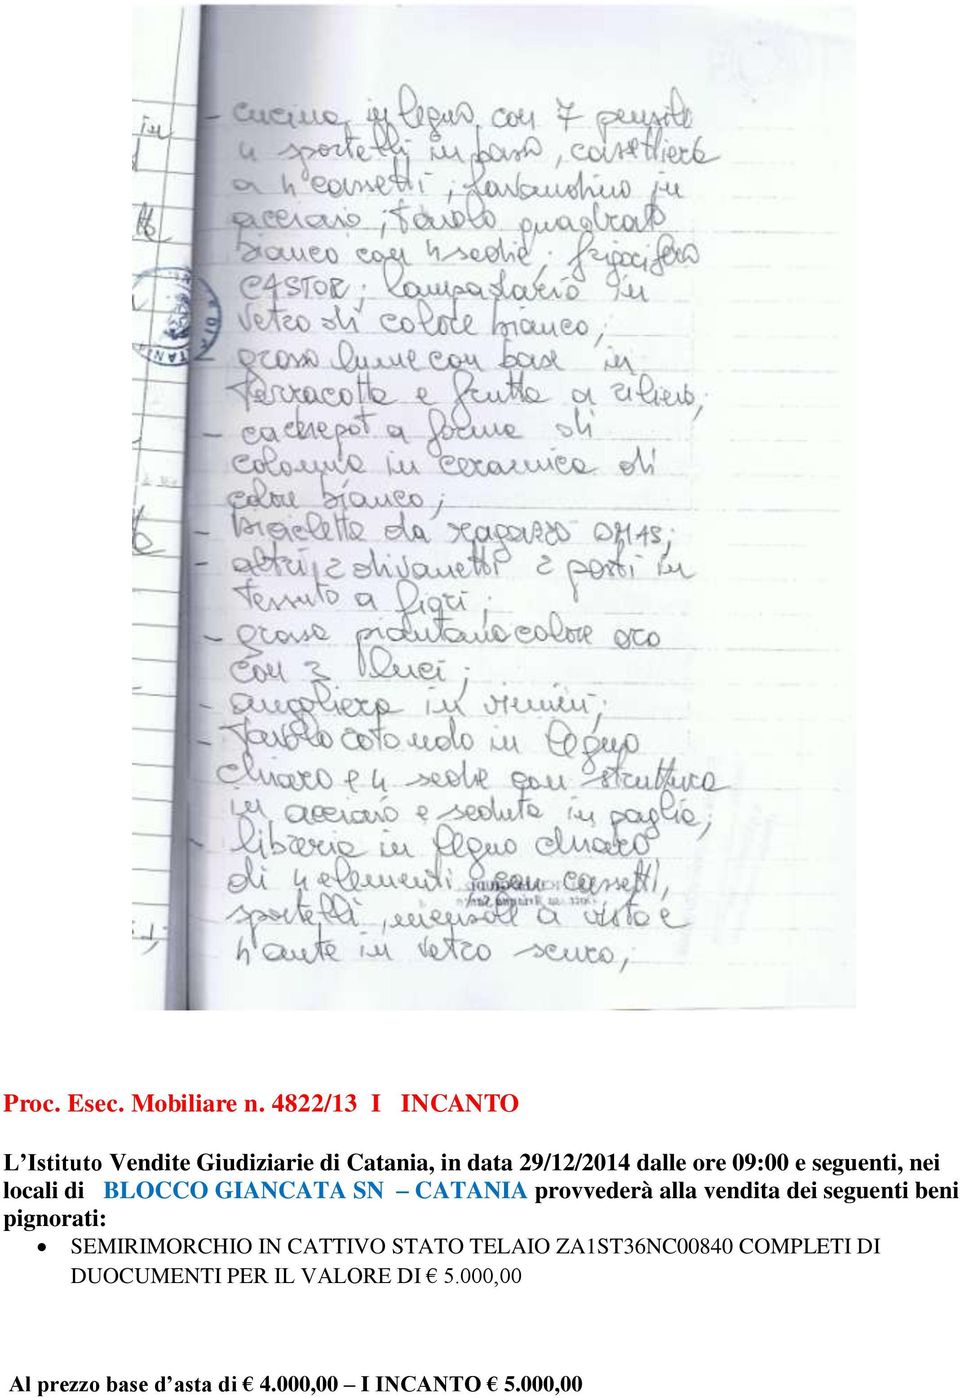 - cucina in legno con 7 pensili
4 sportelli in basso, cassettiera
a 4 cassetti; lavandino in
acciaio; tavolo quadrato
bianco con 4 sedie; frigorifero
CASTOR; lampadario in
vetro di colore bianco;
- grosso lume con base in
terracotta e frutta a rilievo;
- cachepot a forma di
colonna in ceramica di
colore bianco;
- bicicletta da ragazzo OMAS;
- altri 2 divanetti 2 posti in
tessuto a fiori;
- grossa piantana colore oro
con 3 luci;
- angoliera in vimini;
- tavolo rotondo in legno
chiaro e 4 sedie con struttura
in acciaio e seduta in paglia;
- libreria in legno chiaro
di 4 elementi con cassetti,
sportelli, mensole a vista e
4 ante in vetro scuro;
Proc. Esec. Mobiliare n. 4822/13 I INCANTO
L’Istituto Vendite Giudiziarie di Catania, in data 29/12/2014 dalle ore 09:00 e seguenti, nei
locali di BLOCCO GIANCATA SN – CATANIA provvederà alla vendita dei seguenti beni
pignorati:
• SEMIRIMORCHIO IN CATTIVO STATO TELAIO ZA1ST36NC00840 COMPLETI DI
DUOCUMENTI PER IL VALORE DI € 5.000,00
Al prezzo base d’asta di € 4.000,00 – I INCANTO € 5.000,00